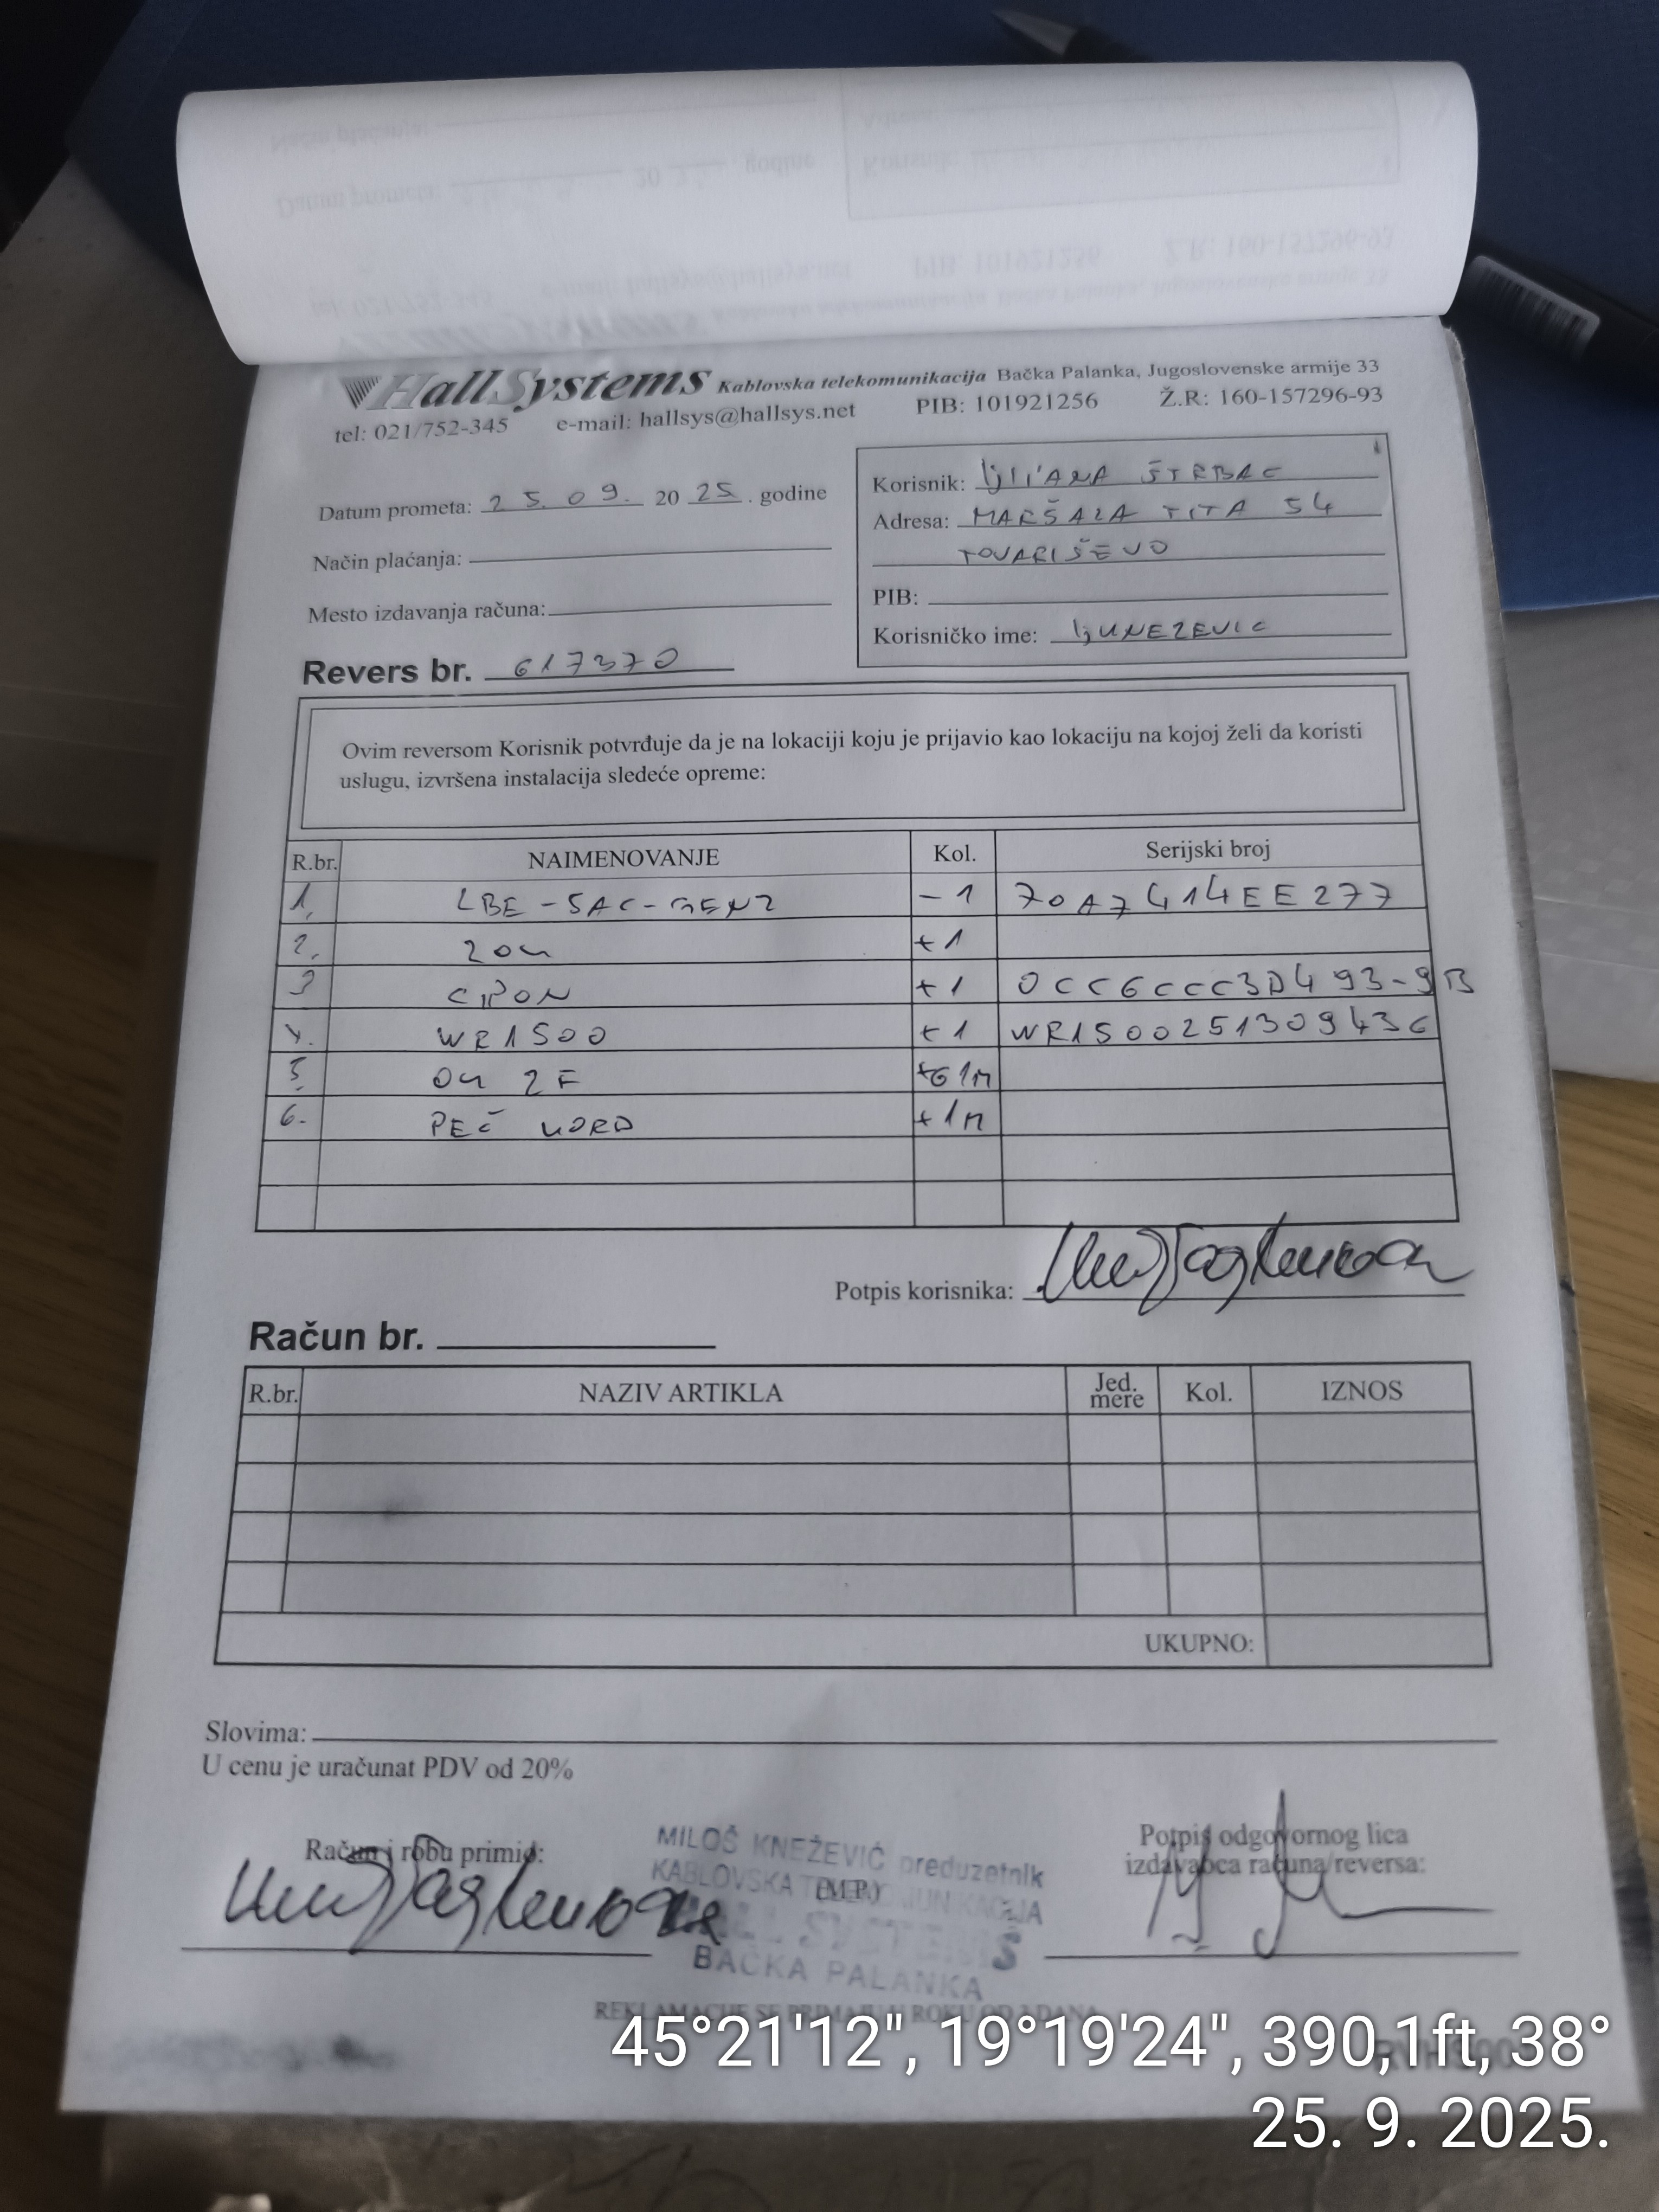 HallSystems Kablovska telekomunikacija Bačka Palanka, Jugoslovenske armije 33
tel: 021/752-345 e-mail: hallsys@hallsys.net PIB: 101921256 Ž.R: 160-157296-93
Datum prometa: 25.09. 2025. godine
Način plaćanja:
Mesto izdavanja računa:
Korisnik: ŠTRBAC
Adresa: MARŠALA TITA 54
TOVARIŠEVO
PIB:
Korisničko ime:
Revers br. 617370
Ovim reversom Korisnik potvrđuje da je na lokaciji koju je prijavio kao lokaciju na kojoj želi da koristi
uslugu, izvršena instalacija sledeće opreme:
R.br. NAIMENOVANJE Kol. Serijski broj
1. LBE-5AC-GEN2 -1 70A7414EE277
2. ZOK +1
3 CPON +1 0CC6CCC3D493-9B
4. WR1500 +1 WR1500251309436
5. OK 2F
6. KORD +1M
Potpis korisnika:
Račun br.
R.br. NAZIV ARTIKLA Jed. mere Kol. IZNOS
UKUPNO:
Slovima:
U cenu je uračunat PDV od 20%
Račun i robu primio:
(M.P.)
Potpis odgovornog lica
izdavaoca računa/reversa:
MILOŠ KNEŽEVIĆ preduzetnik
KABLOVSKA TELEKOMUNIKACIJA
HALL SYSTEMS
BAČKA PALANKA
REKLAMACIJE SE PRIMAJU U ROKU OD DANA
45°21'12", 19°19'24", 390,1ft, 38°
25. 9. 2025.